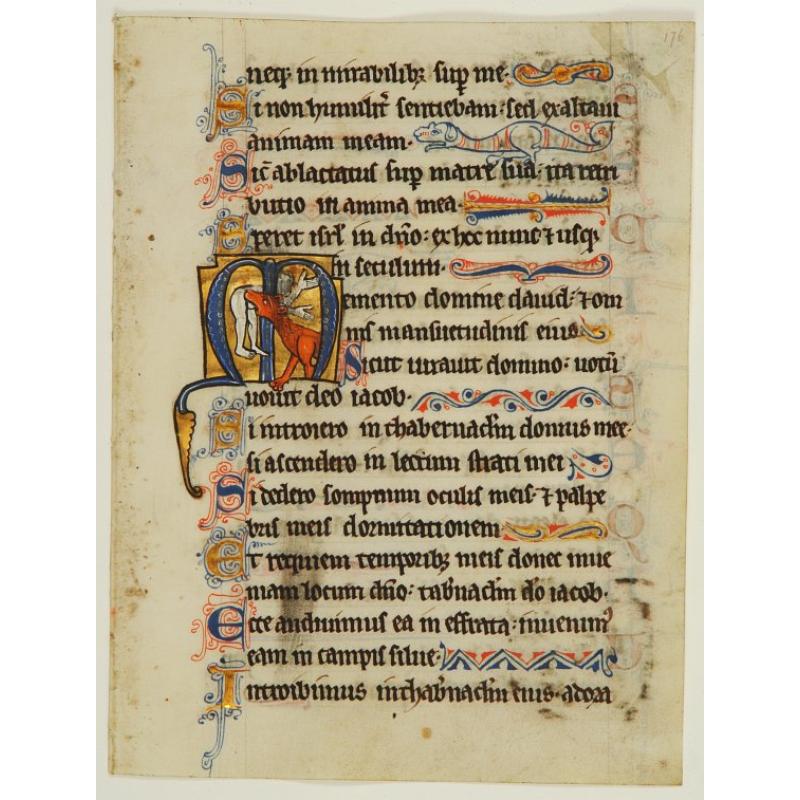 176
neqꝫ in mirabilibꝫ suꝑ me·
Si non humilit̄ sentiebam· sed exaltaui
animam meam·
Sic̄ ablactatus suꝑ matre sua· ita retri
butio in anima mea·
Speret isrl̄ in dn̄o· ex hoc nunc ⁊ usqꝫ
in seculum·
Memento domine dauid· ⁊ om
nis mansuetudinis eius·
Sicut iurauit domino· uotū
uouit deo iacob·
Si introiero in thabernacl̄m domus mee·
si ascendero in lectum strati mei
Si dedero sompnum oculis meis· ⁊ palpe
bris meis dormitationem
Et requiem temporibꝫ meis donec inue
niam locum dn̄o· tab̄nacl̄m dō iacob·
Ecce audiuimus ea in effrata· inuenimꝰ
eam in campis silue·
Introibimus in thab̄nacl̄m eius· adora